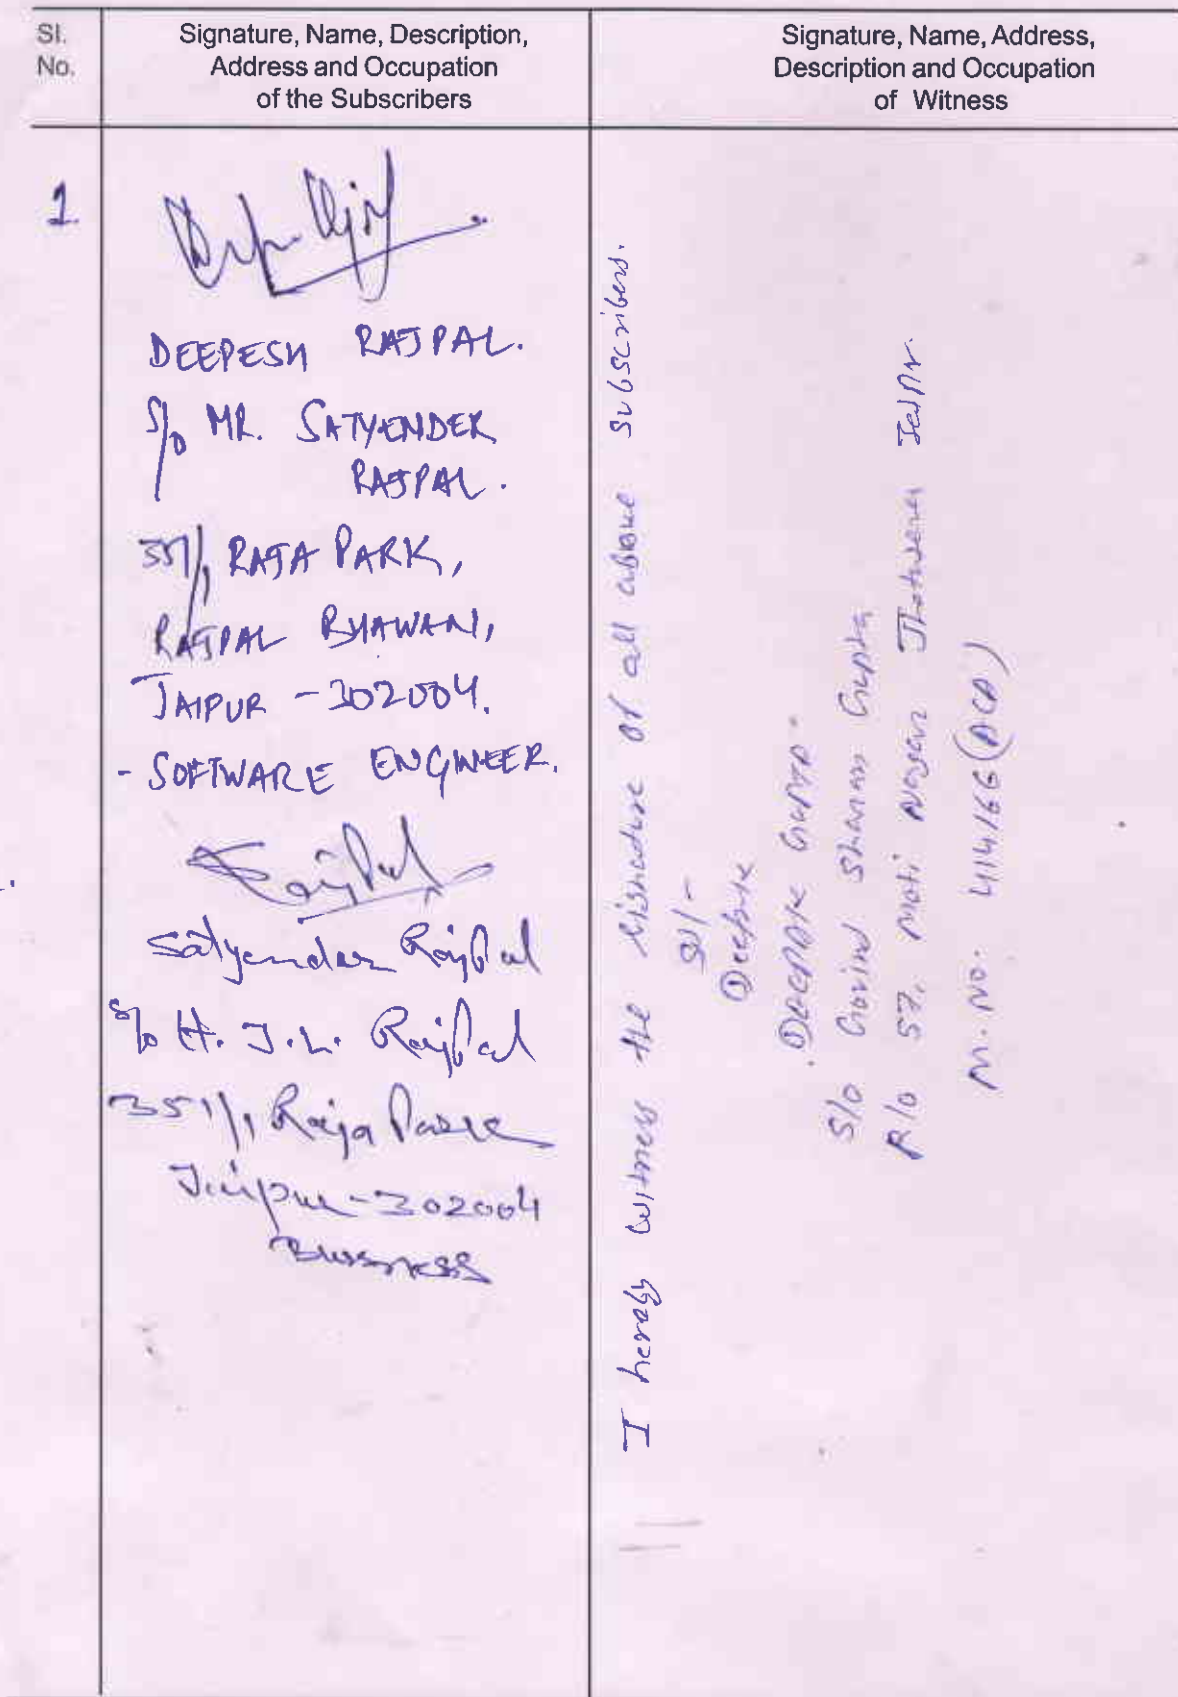 Sl.
No.
Signature, Name, Description,
Address and Occupation
of the Subscribers
Signature, Name, Address,
Description and Occupation
of Witness
1.
DEEPESH RAJPAL.
S/o MR. SATYENDER
RAJPAL.
351/1, RAJA PARK,
RAJPAL BHAWAN,
JAIPUR - 302004.
- SOFTWARE ENGINEER.
Rajpal
Satyender Rajpal
S/o H. J.L. Rajpal
351/1, Raja Park
Jaipur - 302004
Business
I heraby witness the signature of all above subscribers.
Sd/-
Deepak
DEEPAK GUPTA
S/o Govind Sharan Gupta
R/o 57, Moti Nagar Jhotwara Jaipur.
M. No. 414166 (ACA)